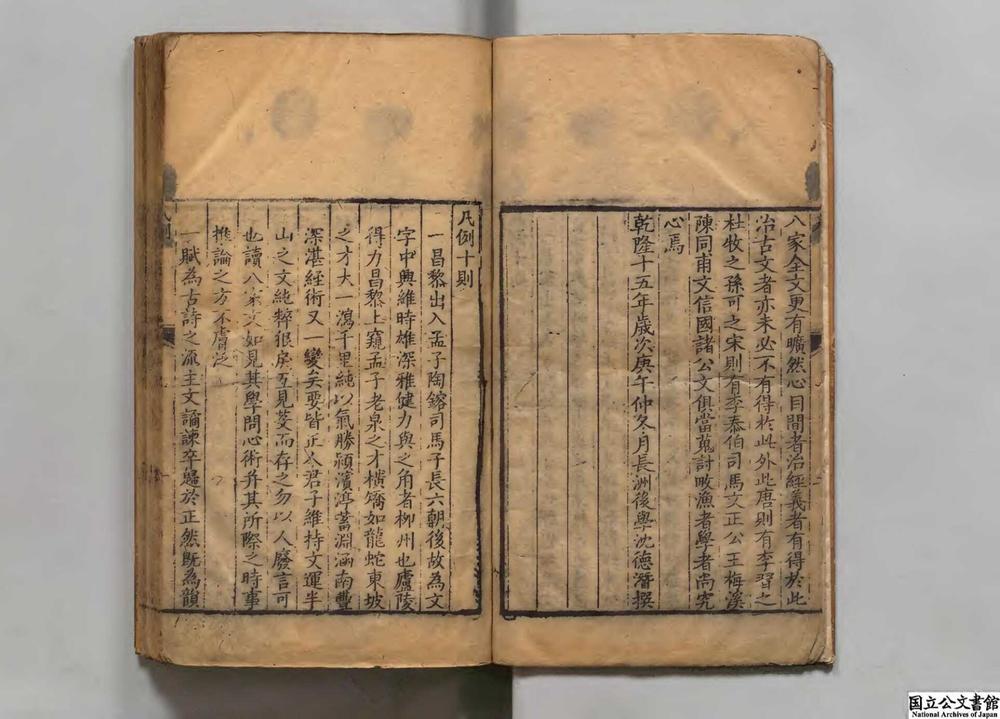 八家全文更有曠然心目間者治經義者有得於此
治古文者亦未必不有得於此外此唐則有李習之
杜牧之孫可之宋則有李泰伯司馬文正公王梅溪
陳同甫文信國諸公文俱當蒐討畋漁者學者尚究
心焉
乾隆十五年歲次庚午仲冬月長洲後學沈德潛撰
凡例十則
一昌黎出入孟子陶鎔司馬子長六朝後故為文
字中興維時雄深雅健力與之角者柳州也廬陵
得力昌黎上窺孟子老泉之才橫矯如龍蛇東坡
之才大一瀉千里純以氣勝潁濱渟蓄淵涵南豐
深湛經術又一變矣要皆正人君子維持文運半
山之文純粹很戾互見芟而存之勿以人廢言可
也讀八家文如見其學問心術并其所際之時事
推論之方不膚泛
一賦為古詩之流主文譎諫卒歸於正然既為韻
国立公文書館
National Archives of Japan